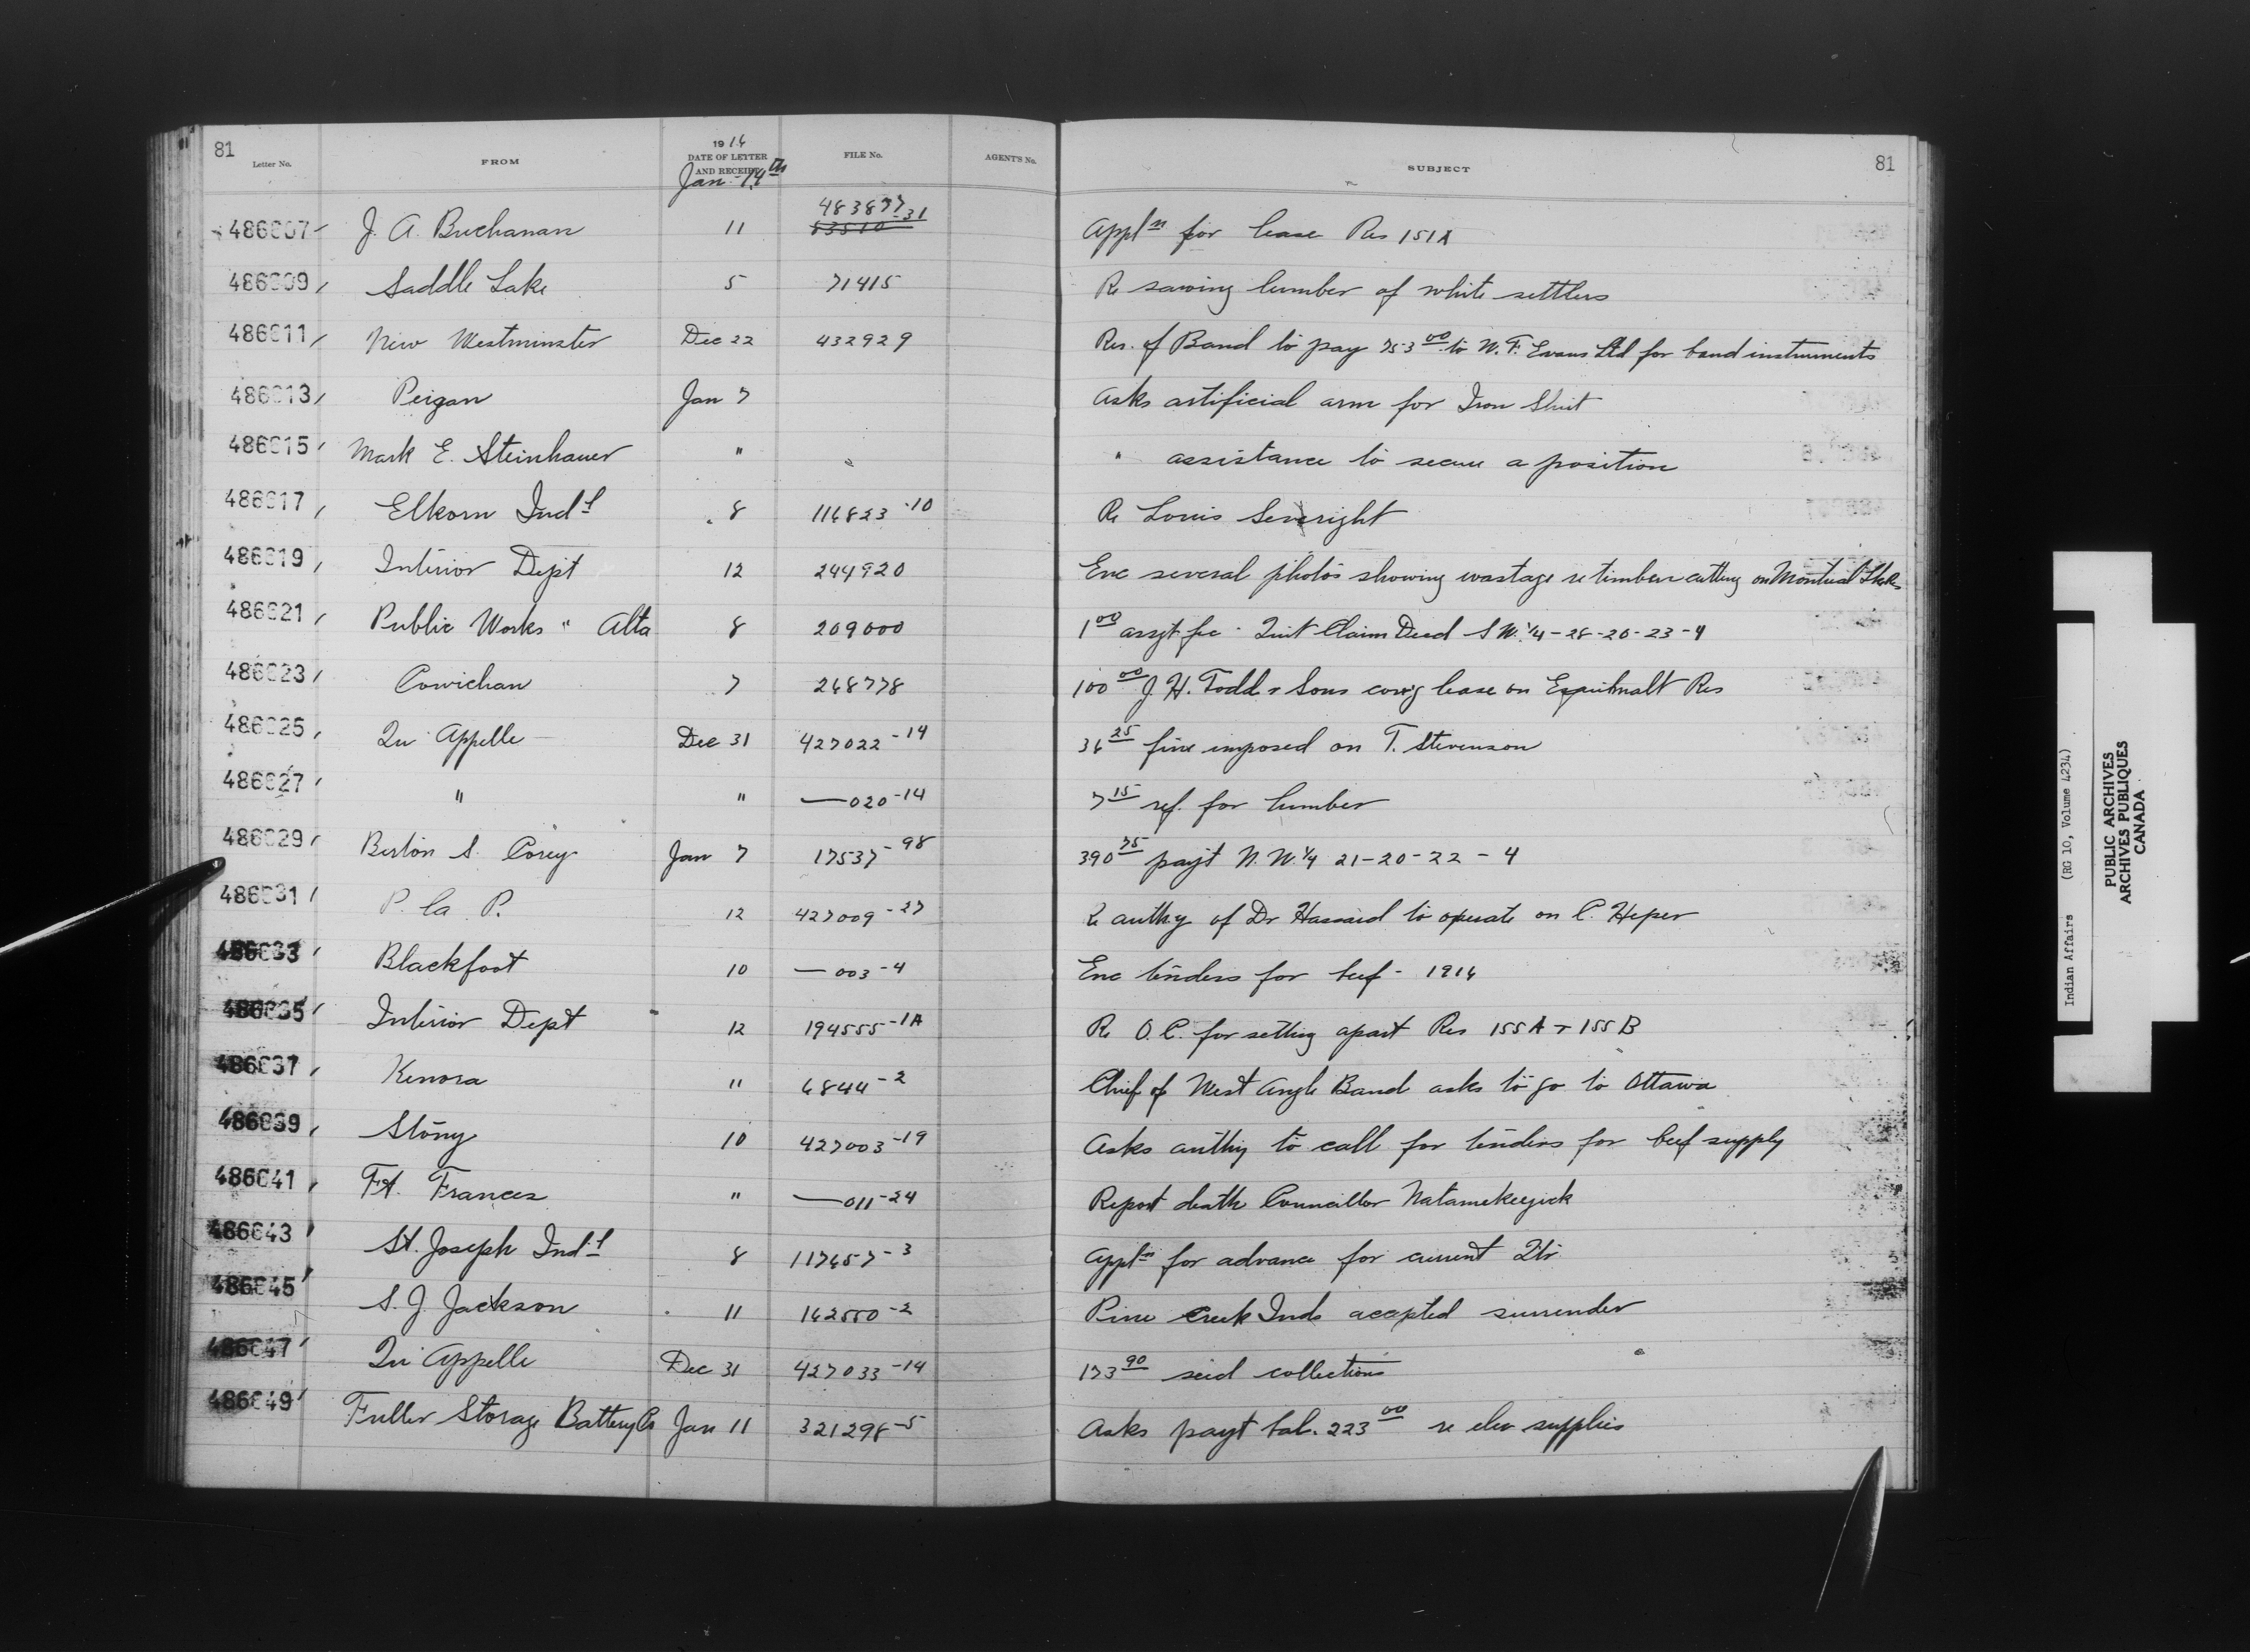 81
Letter No. FROM 1916 DATE OF LETTER AND RECEIPT FILE No. AGENT'S No. SUBJECT 81
Jan 14th
483877-31
486007 J. A. Buchanan 11 63510 Applⁿ for lease Res 151A
486009 Saddle Lake 5 71415 Re sawing lumber of white settlers
486011 New Westminster Dec 22 432929 Res. of Band to pay 753.00 to W. F. Evans Ltd for band instruments
486013 Peigan Jan 7 Asks artificial arm for Iron Shirt
486015 Mark E. Steinhauer " " assistance to secure a position
486017 Elkorn Indl 8 116823-10 Re Louis Severight
486019 Interior Dept 12 244920 Enc several photos showing wastage re timber cutting on Montreal Lk Res
486021 Public Works " Alta 8 209000 1.00 assgt fee - Quit Claim Deed S W. 1/4-28-20-23-4
486023 Cowichan 7 268778 100.00 J. H. Todd & Sons cov'g lease on Esquimalt Res
486025 Qu'Appelle Dec 31 427022-14 36.25 fine imposed on T. Stevenson
486027 " " —020-14 7.15 ref. for lumber
486029 Berton S. Corey Jan 7 17537-98 390.75 pay't N. W. 1/4 21-20-22-4
486031 P. la P. 12 427009-27 Re authy of Dr Hassard to operate on C. Heper
486033 Blackfoot 10 —003-4 Enc tenders for beef - 1916
486035 Interior Dept 12 194555-1A Re O. C. for setting apart Res 155A & 155B
486037 Kenora 11 6844-2 Chief of West Angle Band asks to go to Ottawa
486039 Stony 10 427003-19 Asks authy to call for tenders for beef supply
486041 Ft. Frances " —011-24 Report death Councillor Natamekeegick
486043 St. Joseph Indl 8 117657-3 Applⁿ for advance for current Qtr
486045 S. J. Jackson 11 162550-2 Pine Creek Inds accepted surrender
486047 Qu'Appelle Dec 31 427033-14 173.90 seed collections
486049 Fuller Storage Battery Co Jan 11 321298-5 Asks payt bal. 223.00 re elec supplies
Indian Affairs (RG 10, Volume 4234)
PUBLIC ARCHIVES
ARCHIVES PUBLIQUES
CANADA